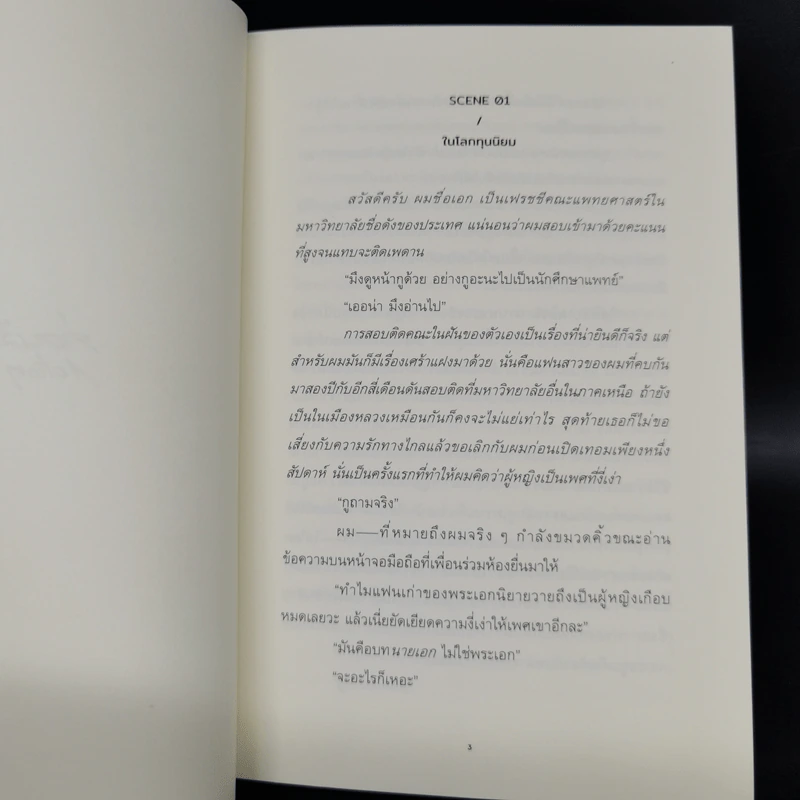 SCENE 01
/
ในโลกทุนนิยม
สวัสดีครับ ผมชื่อเอก เป็นเฟรชชีคณะแพทยศาสตร์ใน
มหาวิทยาลัยชื่อดังของประเทศ แน่นอนว่าผมสอบเข้ามาด้วยคะแนน
ที่สูงจนแทบจะติดเพดาน
“มึงดูหน้ากูด้วย อย่างกูอะนะไปเป็นนักศึกษาแพทย์”
“เออน่า มึงอ่านไป”
การสอบติดคณะในฝันของตัวเองเป็นเรื่องที่น่ายินดีก็จริง แต่
สำหรับผมมันก็มีเรื่องเศร้าแฝงมาด้วย นั่นคือแฟนสาวของผมที่คบกัน
มาสองปีกับอีกสี่เดือนดันสอบติดที่มหาวิทยาลัยอื่นในภาคเหนือ ถ้ายัง
เป็นในเมืองหลวงเหมือนกันก็คงจะไม่แย่เท่าไร สุดท้ายเธอก็ไม่ขอ
เสี่ยงกับความรักทางไกลแล้วขอเลิกกับผมก่อนเปิดเทอมเพียงหนึ่ง
สัปดาห์ นั่นเป็นครั้งแรกที่ทำให้ผมคิดว่าผู้หญิงเป็นเพศที่งี่เง่า
“กูถามจริง”
ผม—ที่หมายถึงผมจริง ๆ กำลังขมวดคิ้วขณะอ่าน
ข้อความบนหน้าจอมือถือที่เพื่อนร่วมห้องยื่นมาให้
“ทำไมแฟนเก่าของพระเอกนิยายวายถึงเป็นผู้หญิงเกือบ
หมดเลยวะ แล้วเนี่ยยัดเยียดความงี่เง่าให้เพศเขาอีกละ”
“มันคือบทนายเอก ไม่ใช่พระเอก”
“จะอะไรก็เหอะ”
3